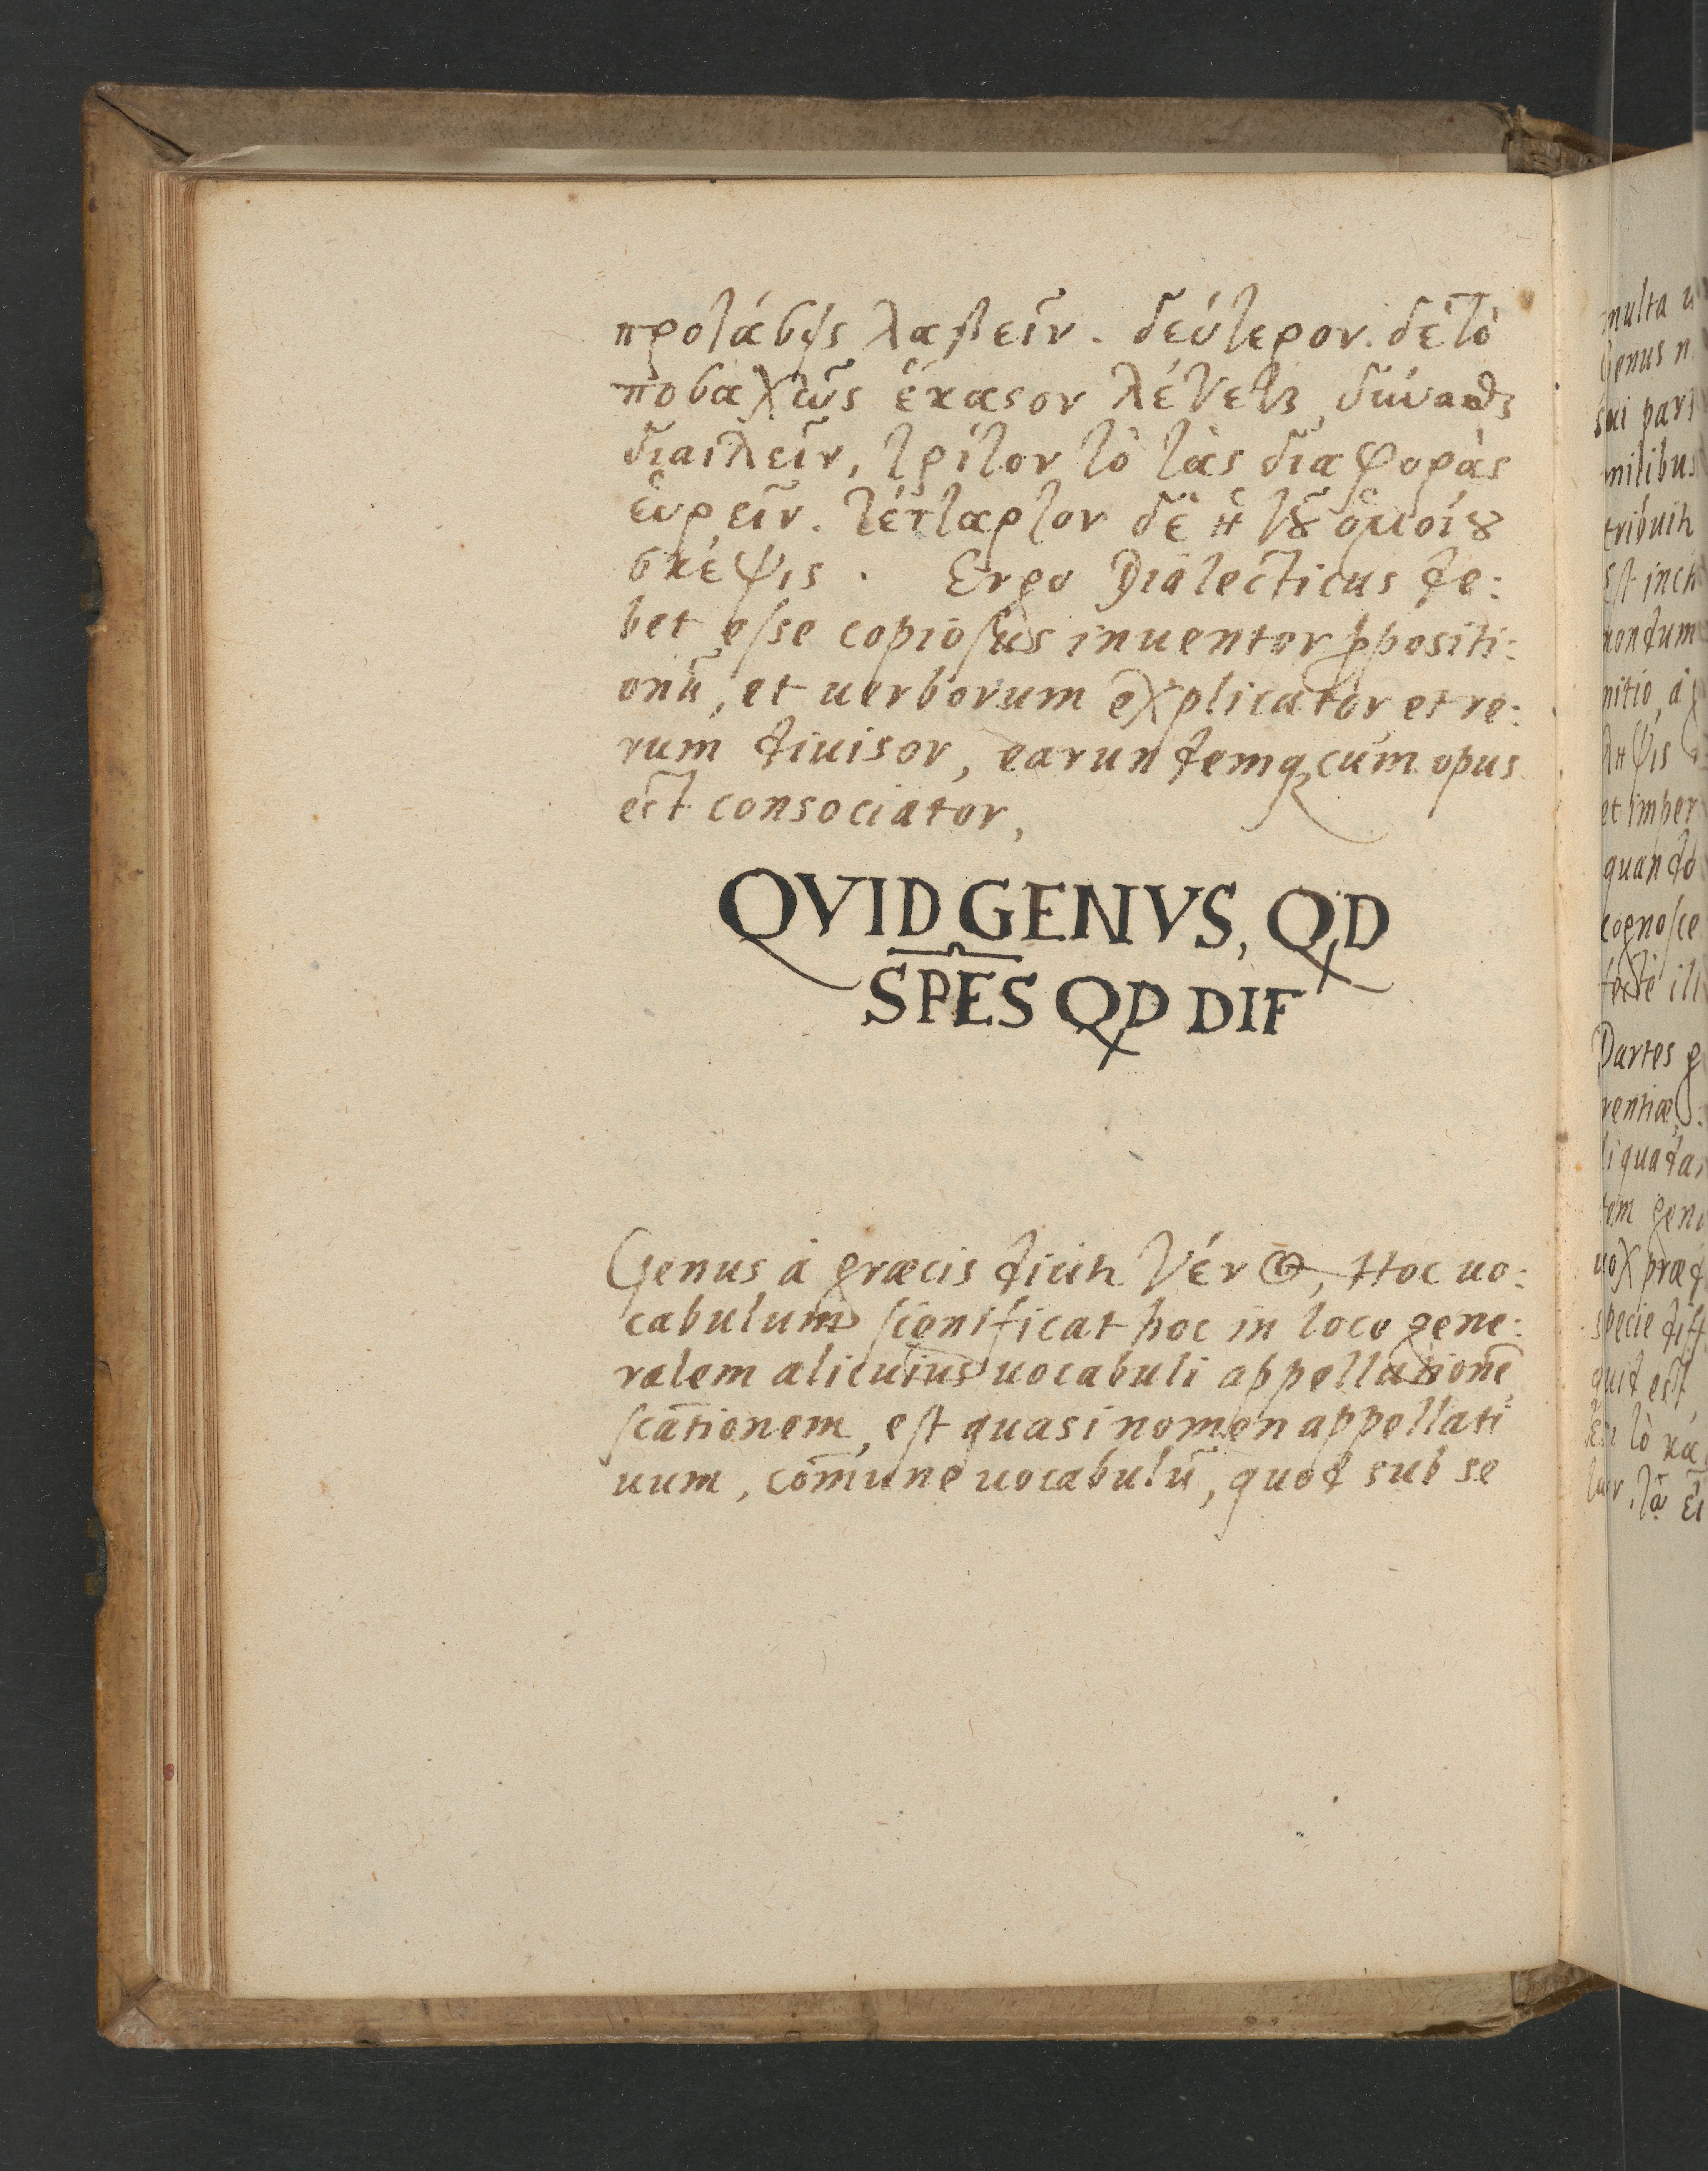 προτάσεις λαβεῖν. δεύτερον. δὲ τὸ
ποσαχῶς ἕκαστον λέγεται δύνασθαι
διαιλεῖν, τρίτον τὸ τὰς διαφορὰς
ἑυρεῖν. τέτταρτον δὲ ἡ τȣ͂ ὁμοίȣ
σκέψις. Ergo Dialecticus de:
bet esse copiosus inuentor ꝓpositi:
onū, et uerborum explicator et re:
rum diuisor, earundemqꝫ cùm opus
est consociator,
QVID GENVS, QD
SPES QD DIF
Genus à græcis dicit̃ γένος, Hoc uo:
cabulum significat hoc in loco gene:
ralem alicuius uocabuli appellationē
scationem, est quasi nomen appellati
uum, com̄une uocabulū, quod sub se
multa
Genus n
sui par
milibus
tribuit̃
est
nondum
nitio, à
ληψις
et imper
quando
cognosce
ill
Partes
rentiæ,
liqua
tem gen
uox præd
specie diff
quid est,
τὸ κα